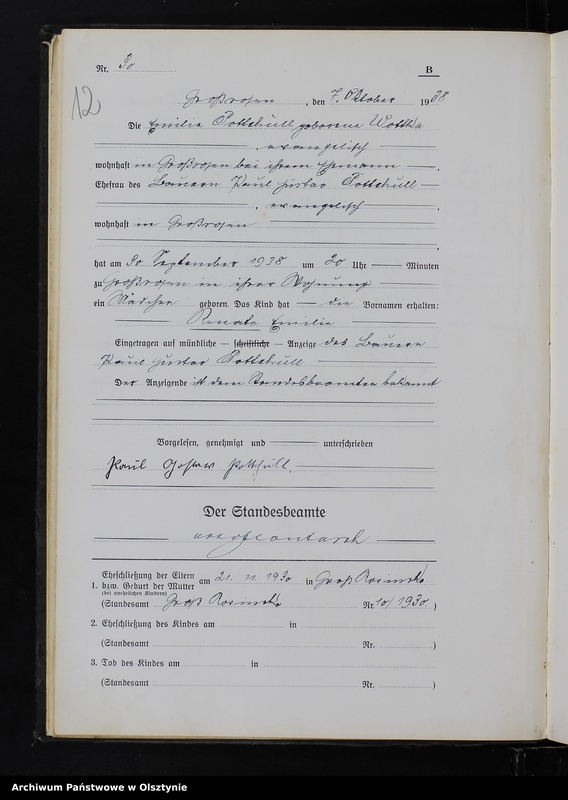 Nr. 30 B
12
Großrosen, den 7. Oktober 1938
Die Emilie Pottschull geborene Wottka
, evangelisch,
wohnhaft in Großrosen bei ihrem Ehemann,
Ehefrau des Bauern Paul Gustav Pottschull
, evangelisch,
wohnhaft in Großrosen
,
hat am 30 September 1938 um 20 Uhr Minuten
zu Großrosen in ihrer Wohnung
ein Mädchen geboren. Das Kind hat die Vornamen erhalten:
Renate Emilie
Eingetragen auf mündliche — schriftliche — Anzeige des Bauern
Paul Gustav Pottschull
Der Anzeigende ist dem Standesbeamten bekannt
Vorgelesen, genehmigt und unterschrieben
Paul Gustaw Pottschull.
Der Standesbeamte
Eheschließung der Eltern
1. bzw. Geburt der Mutter am 21. 11. 1930 in Groß Rosinsko
(bei unehelichen Kindern)
(Standesamt Groß Rosinsko Nr. 10/1930)
2. Eheschließung des Kindes am in
(Standesamt Nr. )
3. Tod des Kindes am in
(Standesamt Nr. )
Archiwum Państwowe w Olsztynie